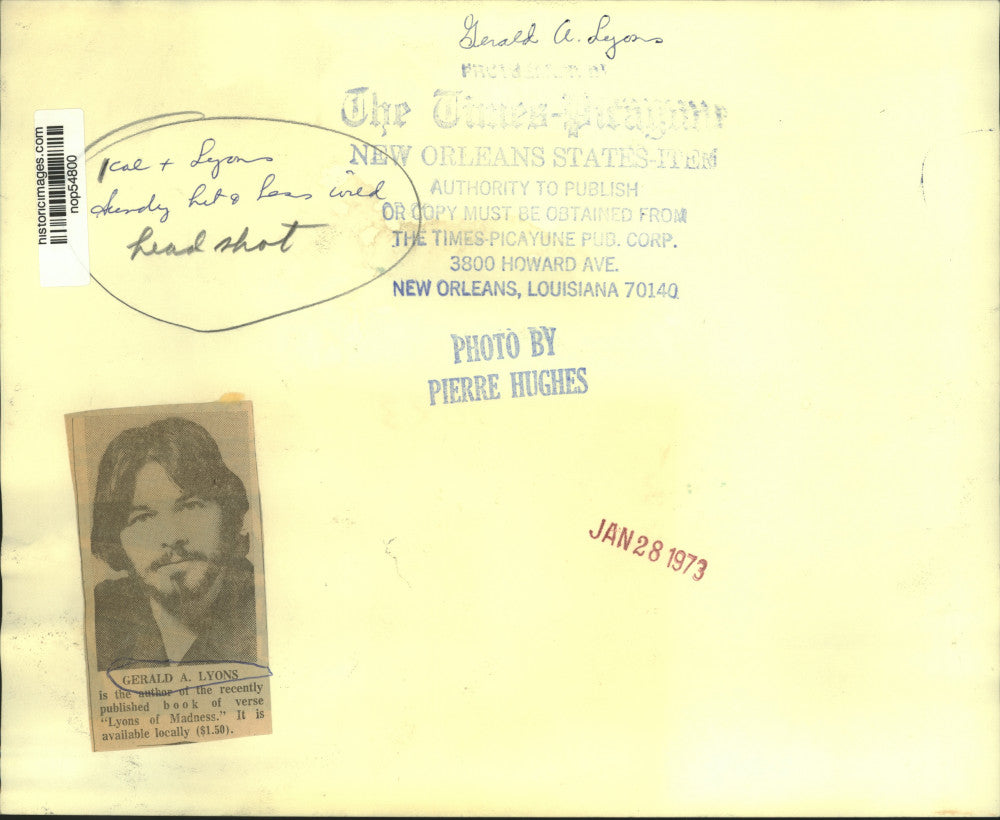 Gerald A. Lyons
The Times-Picayune
NEW ORLEANS STATES-ITEM
AUTHORITY TO PUBLISH
OR COPY MUST BE OBTAINED FROM
THE TIMES-PICAYUNE PUB. CORP.
3800 HOWARD AVE.
NEW ORLEANS, LOUISIANA 70140
historicimages.com
nop54800
+ Lyons
head shot
PHOTO BY
PIERRE HUGHES
JAN 28 1973
GERALD A. LYONS
is the author of the recently
published book of verse
"Lyons of Madness." It is
available locally ($1.50).